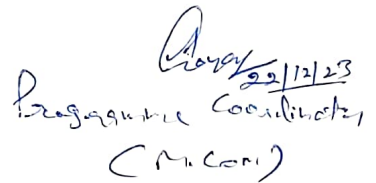 22/12/23
Programme Coordinator
(M.Com)